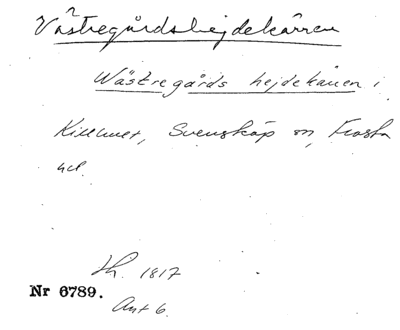 Västregårdshejdekärren
Wästregårds hejdekäuen i
Killhuset, Svenskåp sn, Frosta
hd.
Lh. 1817
Nr 6789.
Akt 6.